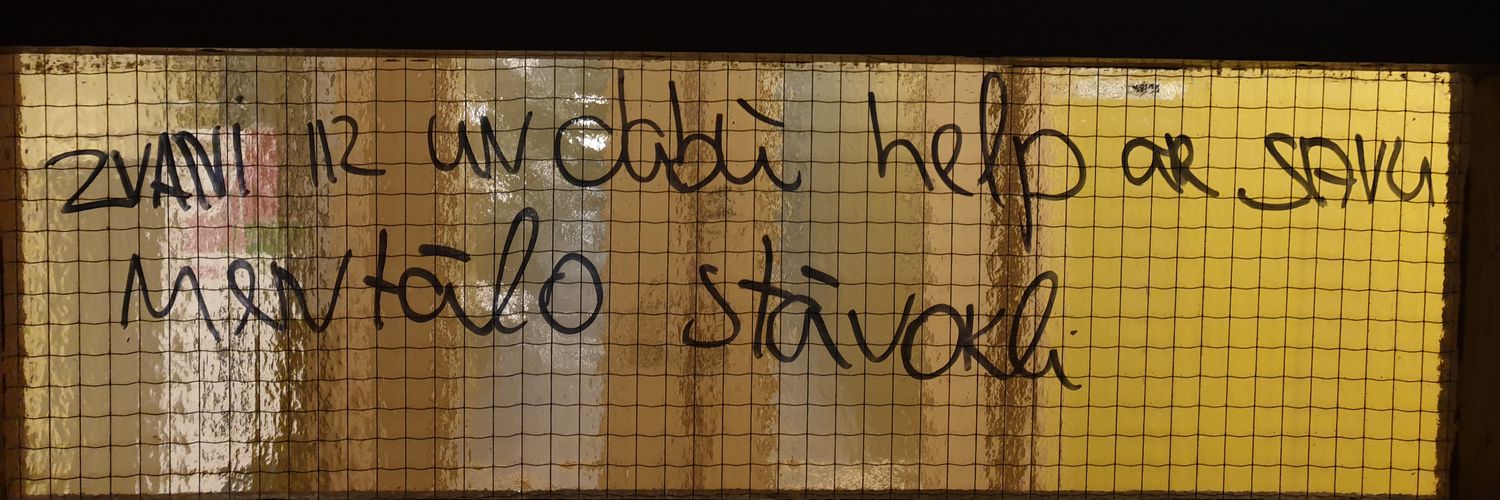 ZVANi 112 uN dabū help aR SAVu
MeNtālo stāvokli